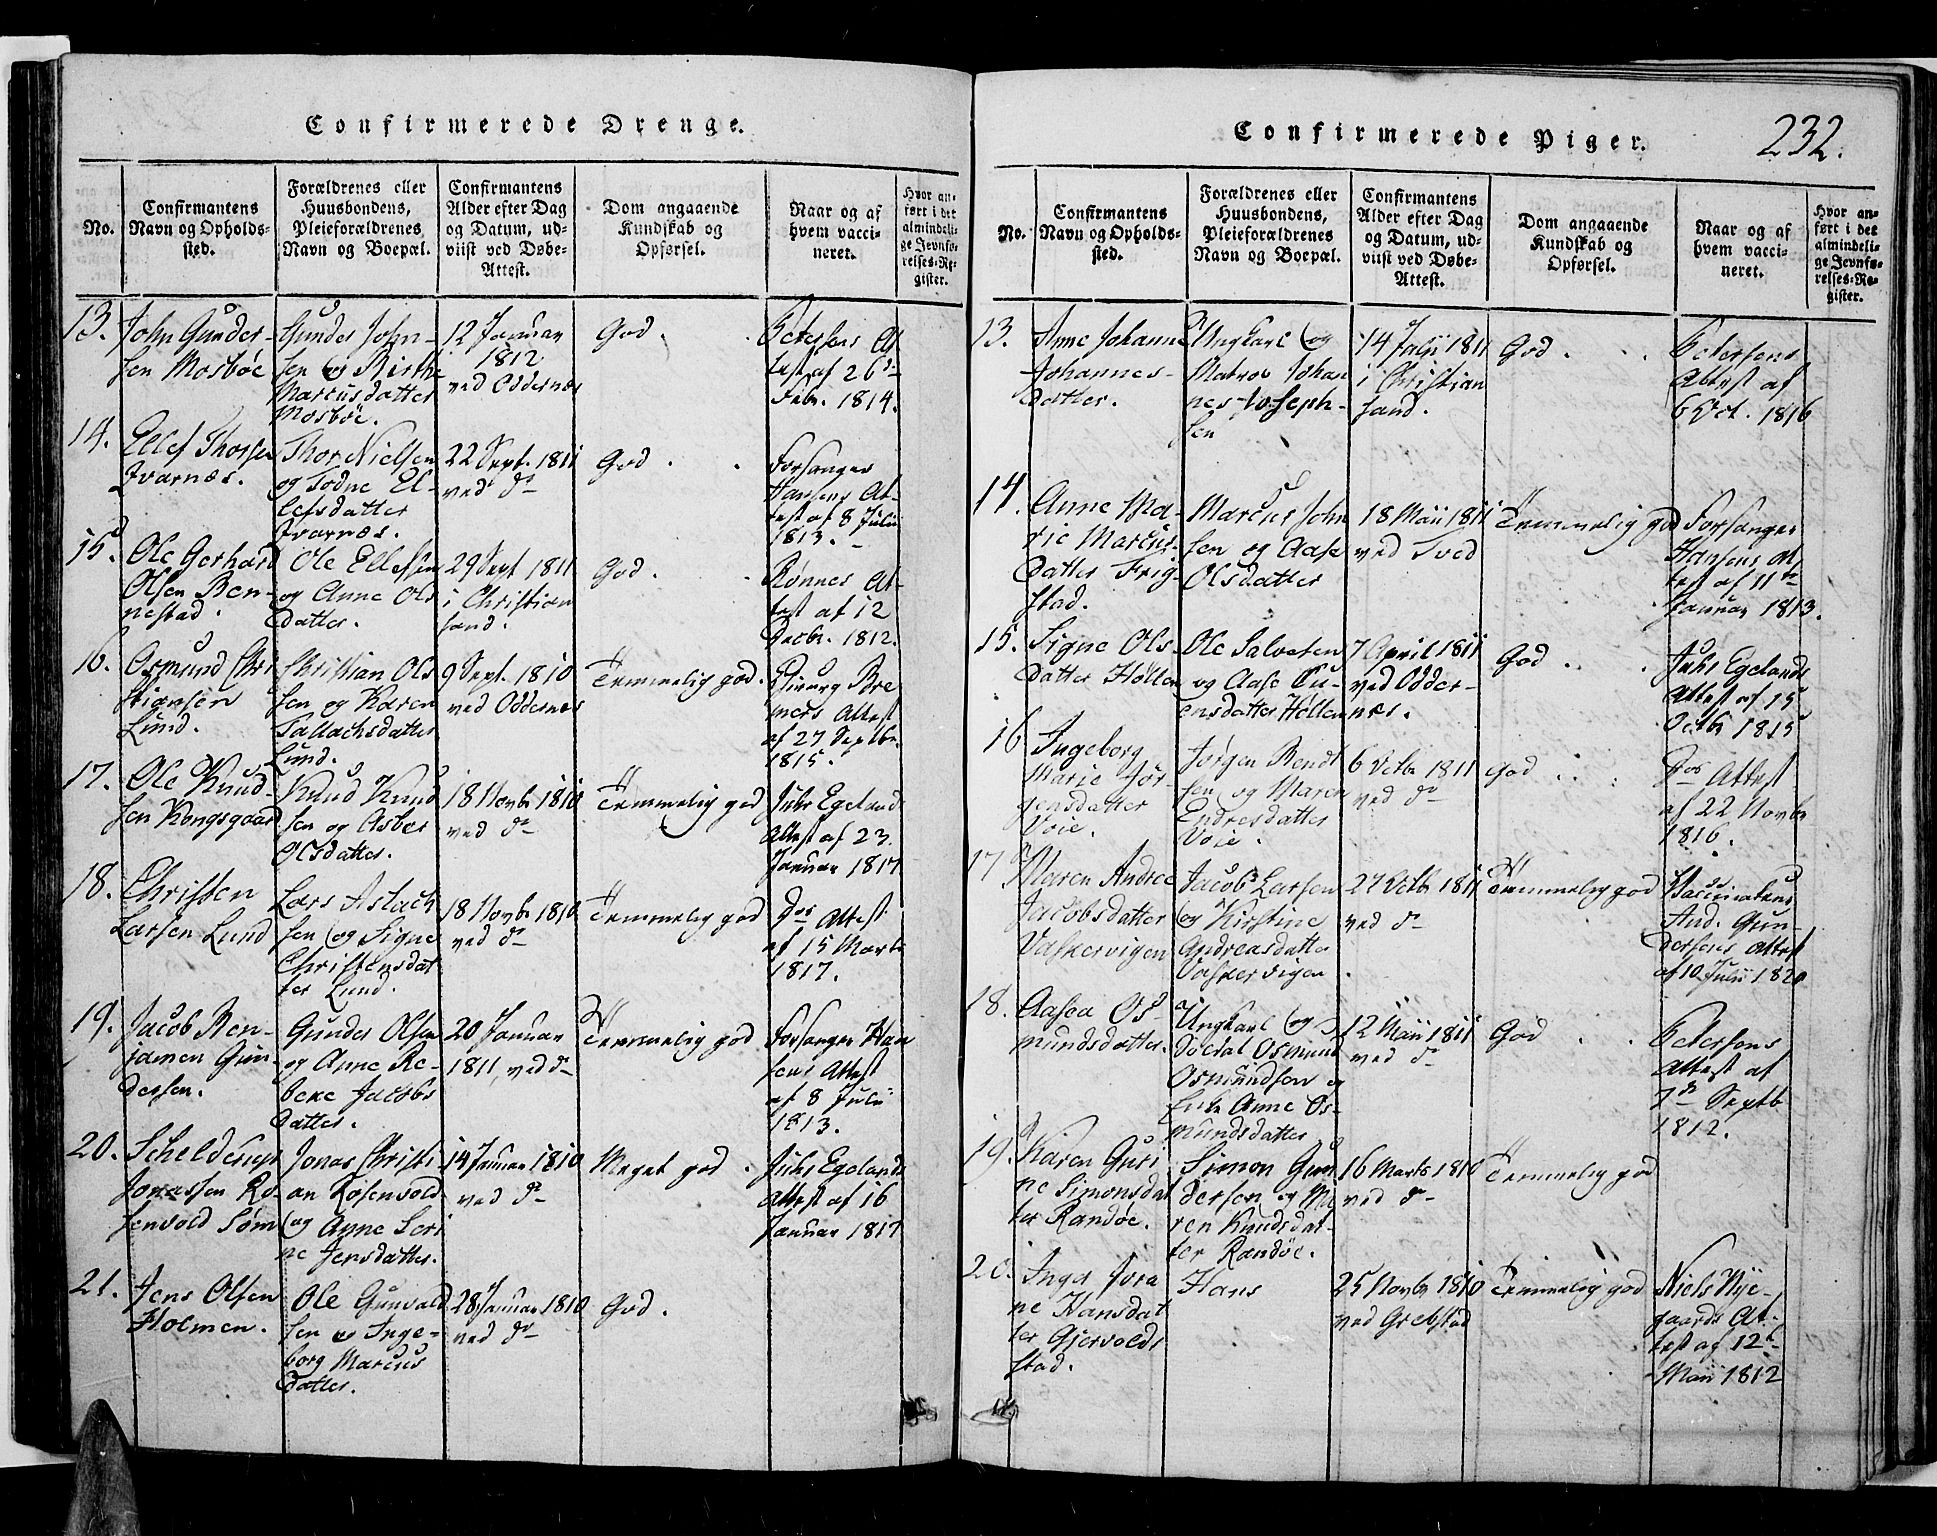 Confirmerede Drenge.
No.
Confirmantens
Navn og Opholds-
sted.
Forældrenes eller
Huusbondens,
Pleieforældrenes
Navn og Boepæl.
Confirmantens
Alder efter Dag
og Datum, ud-
viist ved Døbe-
Attest.
Dom angaaende
Kundskab og
Opførsel.
Naar og af
hvem vacci-
neret.
Hvor an-
ført i det
almindeli-
ge Jevnfø-
relses-Re-
gister.
13.
John Gunder-
sen Mosbøe
Gunder John-
sen og Birthe
Marcusdatter
Mosbøe.
12 Januar
1812
ved Oddernæs
God.
Petersens At-
test af 26de
Febr. 1814.
14.
Ellef Thorsen
Ivarnæs.
Thor Nielsen
og Todne El-
lefsdatter
Ivarnæs.
22 Sept. 1811
ved do
God
Forsanger
Hansens At-
test af 8 Julii
1813.
15.
Ole Gerhard
Olsen Ben-
nestad.
Ole Ellefsen
og Anne Ols
datter.
29 Sept 1811
i Christian
sand.
God.
Rønnes At-
test af 12
Decbr. 1812.
16.
Osmund Chri
stiansen
Lund.
Christian Ols
sen og Karen
Tallachsdatter
Lund.
9 Sept. 1810
ved Oddernæs
Temmelig god.
Chirurg Bre
mers Attest
af 27 Septbr.
1815.
17.
Ole Knud-
sen Kongsgaard
Knud Knud
sen og Asber
Olsdatter.
18 Novbr 1810
ved do
Temmelig god
Juhr Egelands
Attest af 23
Januar 1817
18.
Christen
Larsen Lund
Lars Aslach
sen og Signe
Christensdat
ter Lund.
18 Novbr 1810
ved do
Temmelig god
Dos Attest
af 15 Marts
1817.
19.
Jacob Ben-
jamen Gun-
dersen.
Gunder Olsen
og Anne Re-
beke Jacobs
datter.
20 Januar
1811, ved do
Temmelig god
Forsanger Han
sens Attest
af 8 Julii
1813.
20.
Schelderup
Jonassen Ro
senvold Søm
Jonas Christi
an Rosenvold
og Anne Seri
ne Jensdatter.
14 Januar 1810
ved do
Meget god.
Juhr Egelands
Attest af 16
Januar 1817
21.
Jens Olsen
Holmen.
Ole Gunvald
sen og Inge-
borg Marcus
datter.
28 Januar 1810
ved do
God.
Confirmerede Piger.
232.
No.
Confirmantens
Navn og Opholds-
sted.
Forældrenes eller
Huusbondens,
Pleieforældrenes
Navn og Boepæl.
Confirmantens
Alder efter Dag
og Datum, ud-
viist ved Døbe-
Attest.
Dom angaaende
Kundskab og
Opførsel.
Naar og af
hvem vacci-
neret.
Hvor an-
ført i det
almindeli-
ge Jevnfø-
relses-Re-
gister.
13.
Anne Johanne
Johannes-
datter.
Ungkarl og
Matros Johan
nes Joseph-
sen
14 Julii 1811
i Christian
sand.
God
Petersens
Attest af
6 Oct. 1816
14.
Anne Ma-
rie Marcus-
datter Frig-
stad.
Marcus John
sen og Aase
Olsdatter
18 Maii 1811
ved Tved
Temmelig god
Forsanger
Hansens At
test af 11te
Januar 1813.
15.
Signe Ols
datter Hollen
Ole Salvesen
og Aase Au-
ensdatter Hollen
7 April 1811
ved Odder-
næs.
God
Juhr Egelands
Attest af 15
Octbr 1815
16
Ingeborg
Marie Jør
gensdatter
Voie.
Jørgen Bendt
sen og Maren
Endresdatter
Voie.
6 Octbr 1811
ved do
God
Dos Attest
af 22 Novbr
1816.
17
Maren Andrea
Jacobsdatter
Valkervigen
Jacob Larsen
og Kirstine
Andreasdatter
Valkervigen.
27 Octbr 1811
ved do
Temmelig god
Vaccinateur
And. Gun-
dersens Attest
af 10 Julii 1820
18.
Aasea Os
mundsdatter.
Ungkarl og
Soldat Osmund
Osmundsen og
Enke Anne Os-
mundsdatter
12 Maii 1811
ved do
God
Petersens
Attest af
7de Septb
1812.
19.
Karen Guri
ne Simonsdat
ter Randøe.
Simon Gun
dersen og Ma
ren Knudsdat-
ter Randøe.
16 Marts 1810
ved do
Temmelig god
20.
Inger Jora
ne Hansdat
ter Gjervolds
stad.
Hans
25 Novbr 1810
ved Grebstad
Temmelig god
Niels Nye-
gaards At-
test af 12te
Maii 1812